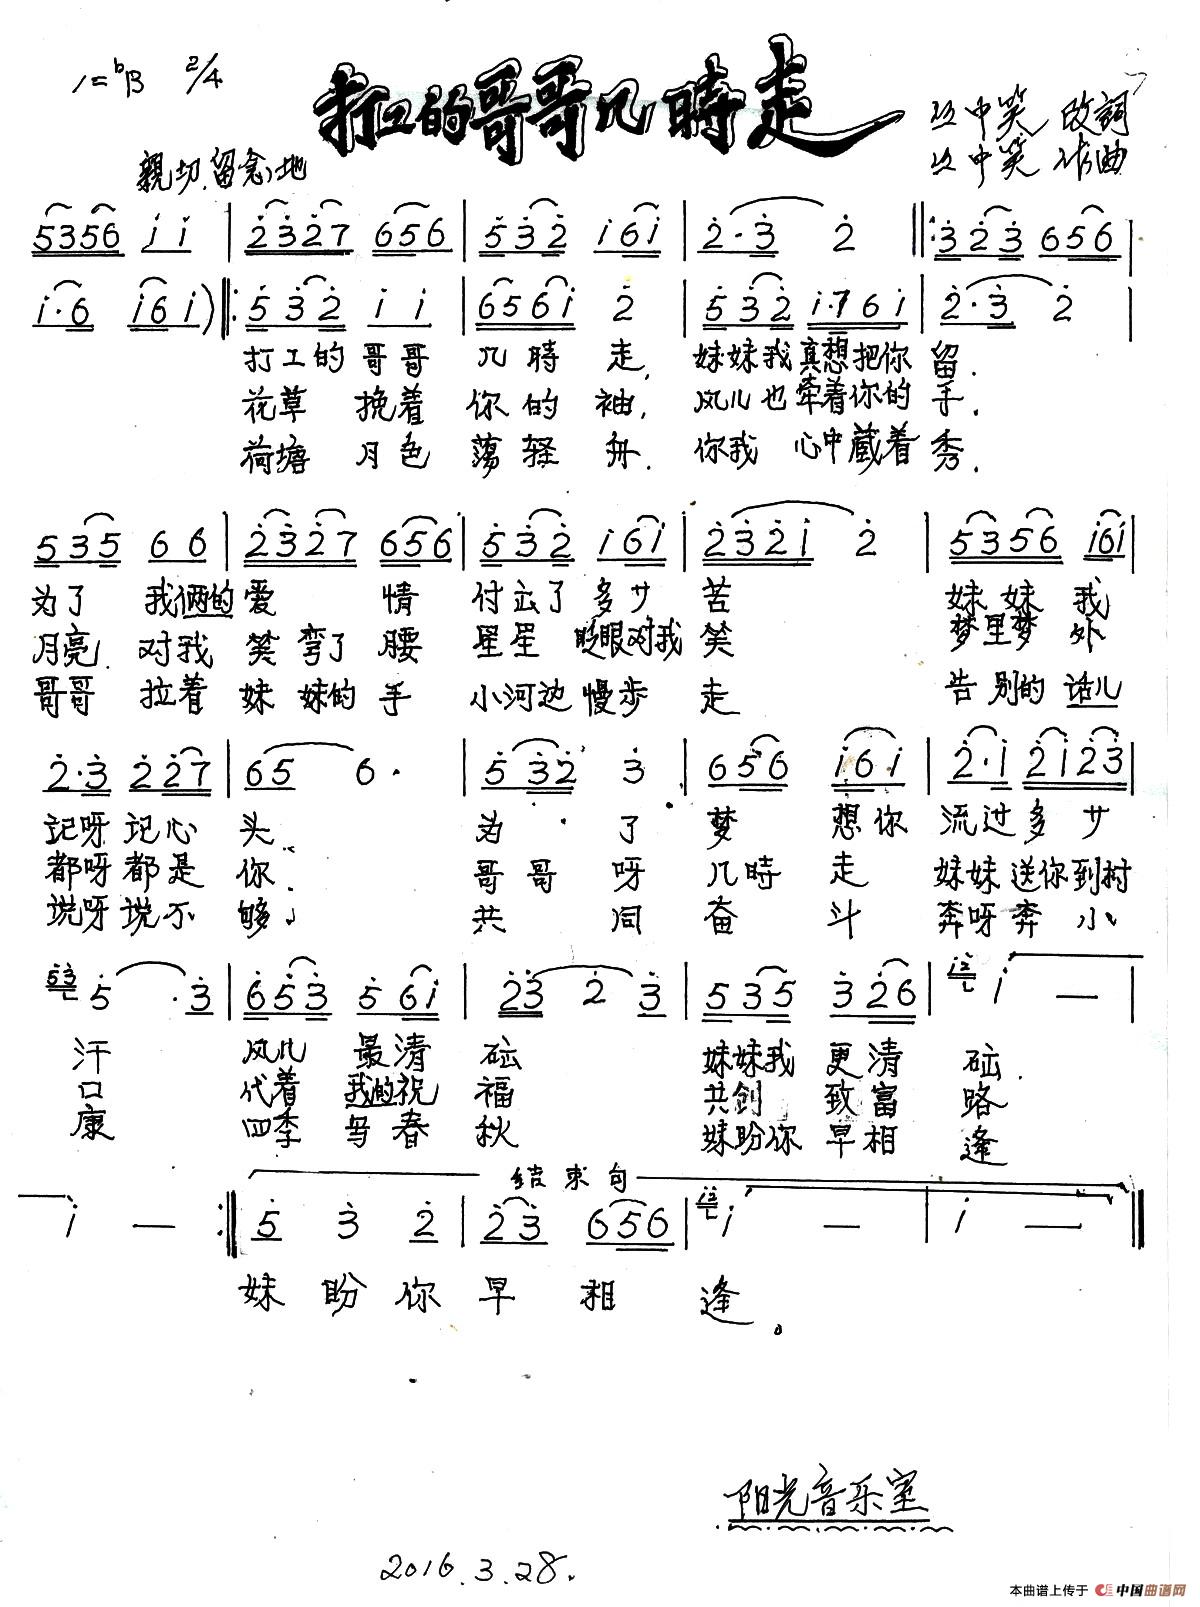 1=bB 2/4
打工的哥哥几時走
中笑 改詞
中笑 作曲
親切.留念地
5356 i i | 2327 656 | 532 i6i | 2·3 2 |: 323 656 |
i·6 i6i) |: 532 i i | 656i 2 | 532 i·76i | 2·3 2 |
打工的 哥哥 几時 走, 妹妹我真想把你 留.
花草 挽着 你的 袖, 风儿也牵着你的 手.
荷塘 月色 荡轻 舟. 你我 心中藏着 秀.
535 66 | 2327 656 | 532 i6i | 232i 2 | 5356 i6i |
为了 我俩的 爱 情 付出了 多少 苦 妹妹 我
月亮 对我 笑弯了 腰 星星 眨眼对我 笑 梦里梦 外
哥哥 拉着 妹妹的 手 小河边 慢步 走 告别的 话儿
2·3 227 | 65 6· | 532 3 | 656 i6i | 2·i 2i23 |
记呀 记心 头. 为 了 梦 想你 流过多少
都呀都是 你. 哥哥 呀 几時 走 妹妹送你到村
说呀说不 够, 共 同 奋 斗 奔呀奔 小
53 5 ·3 | 653 56i | 23 2 3 | 535 326 | i2 i — |
汗 风儿 最清 础 妹妹我 更清 础.
口 代着 我的祝 福 共创 致富 路
康 四季 与春 秋 妹盼你 早相 逢
结束句
i — :| 5 3 2 | 23 656 | i2 i — | i — ||
妹 盼 你 早 相 逢。
阳光音乐室
2016.3.28.
本曲谱上传于 中国曲谱网